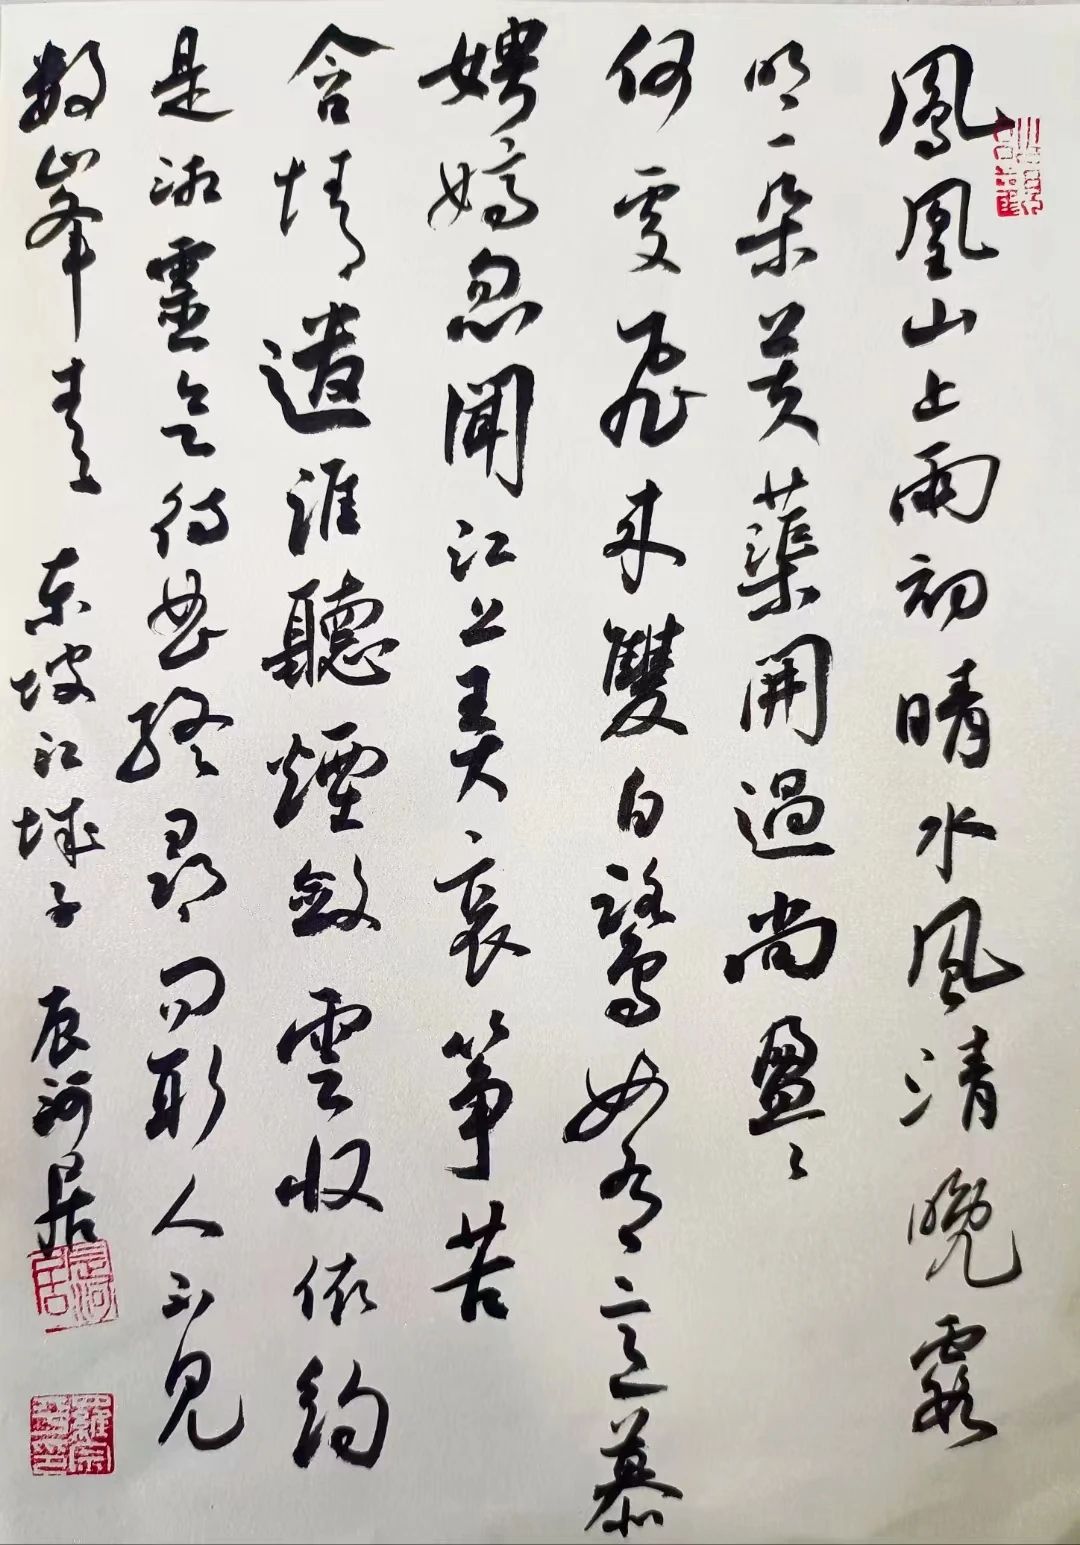 鳳凰山上雨初晴水風清晚霞
明一朵芙蕖開過尚盈〻
何處飛來雙白鷺如有意慕
娉婷忽聞江上弄哀箏苦
含情遣誰聽煙斂雲收依約
是湘靈欲待曲終尋問取人不見
數峯青 東坡江城子 辰河居